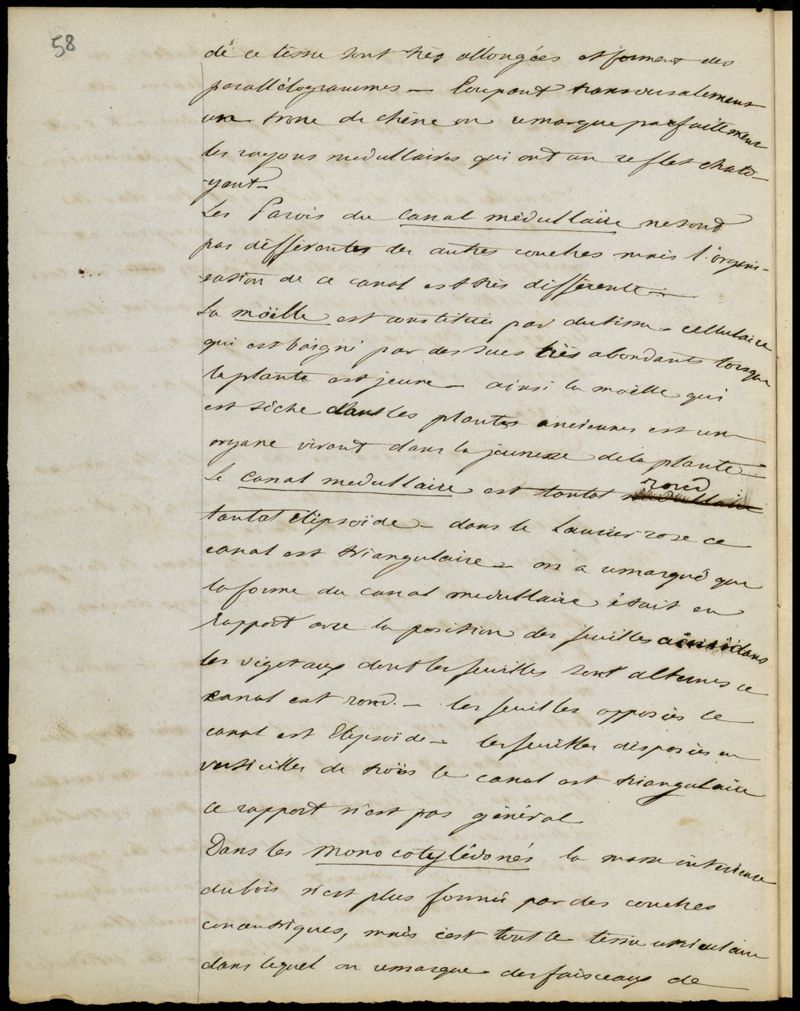 58
de ce tissu sont très allongées et forment des
parallélogrammes — Coupant transversalement
un tronc de chêne on remarque parfaitement
les rayons medullaires qui ont un reflet chato-
-yant —
Les Parois du canal médullaire ne sont
pas différentes des autres couches mais l'organi-
sation de ce canal est très différente —
La möelle est constituée par du tissu cellulaire
qui est baigné par des sucs très abondants lorsque
la plante est jeune — ainsi la moëlle qui
est sèche dans les plantes anciennes est un
organe vivant dans la jeunesse de la plante —
Le canal medullaire est tantot rond
tantot elipsoïde — dans le Laurier rose ce
canal est triangulaire — on a remarqué que
la forme du canal medullaire était en
rapport avec la position des feuilles ainsi dans
les vegetaux dont les feuilles sont alternes ce
canal est rond. — les feuilles opposées le
canal est Elipsoïde — les feuilles disposées en
verticilles de trois le canal est triangulaire
ce rapport n'est pas général
Dans les monocotylédonés la masse intérieure
du bois n'est plus formée par des couches
concentriques, mais c'est tout le tissu utriculaire
dans lequel on remarque des faisceaux de